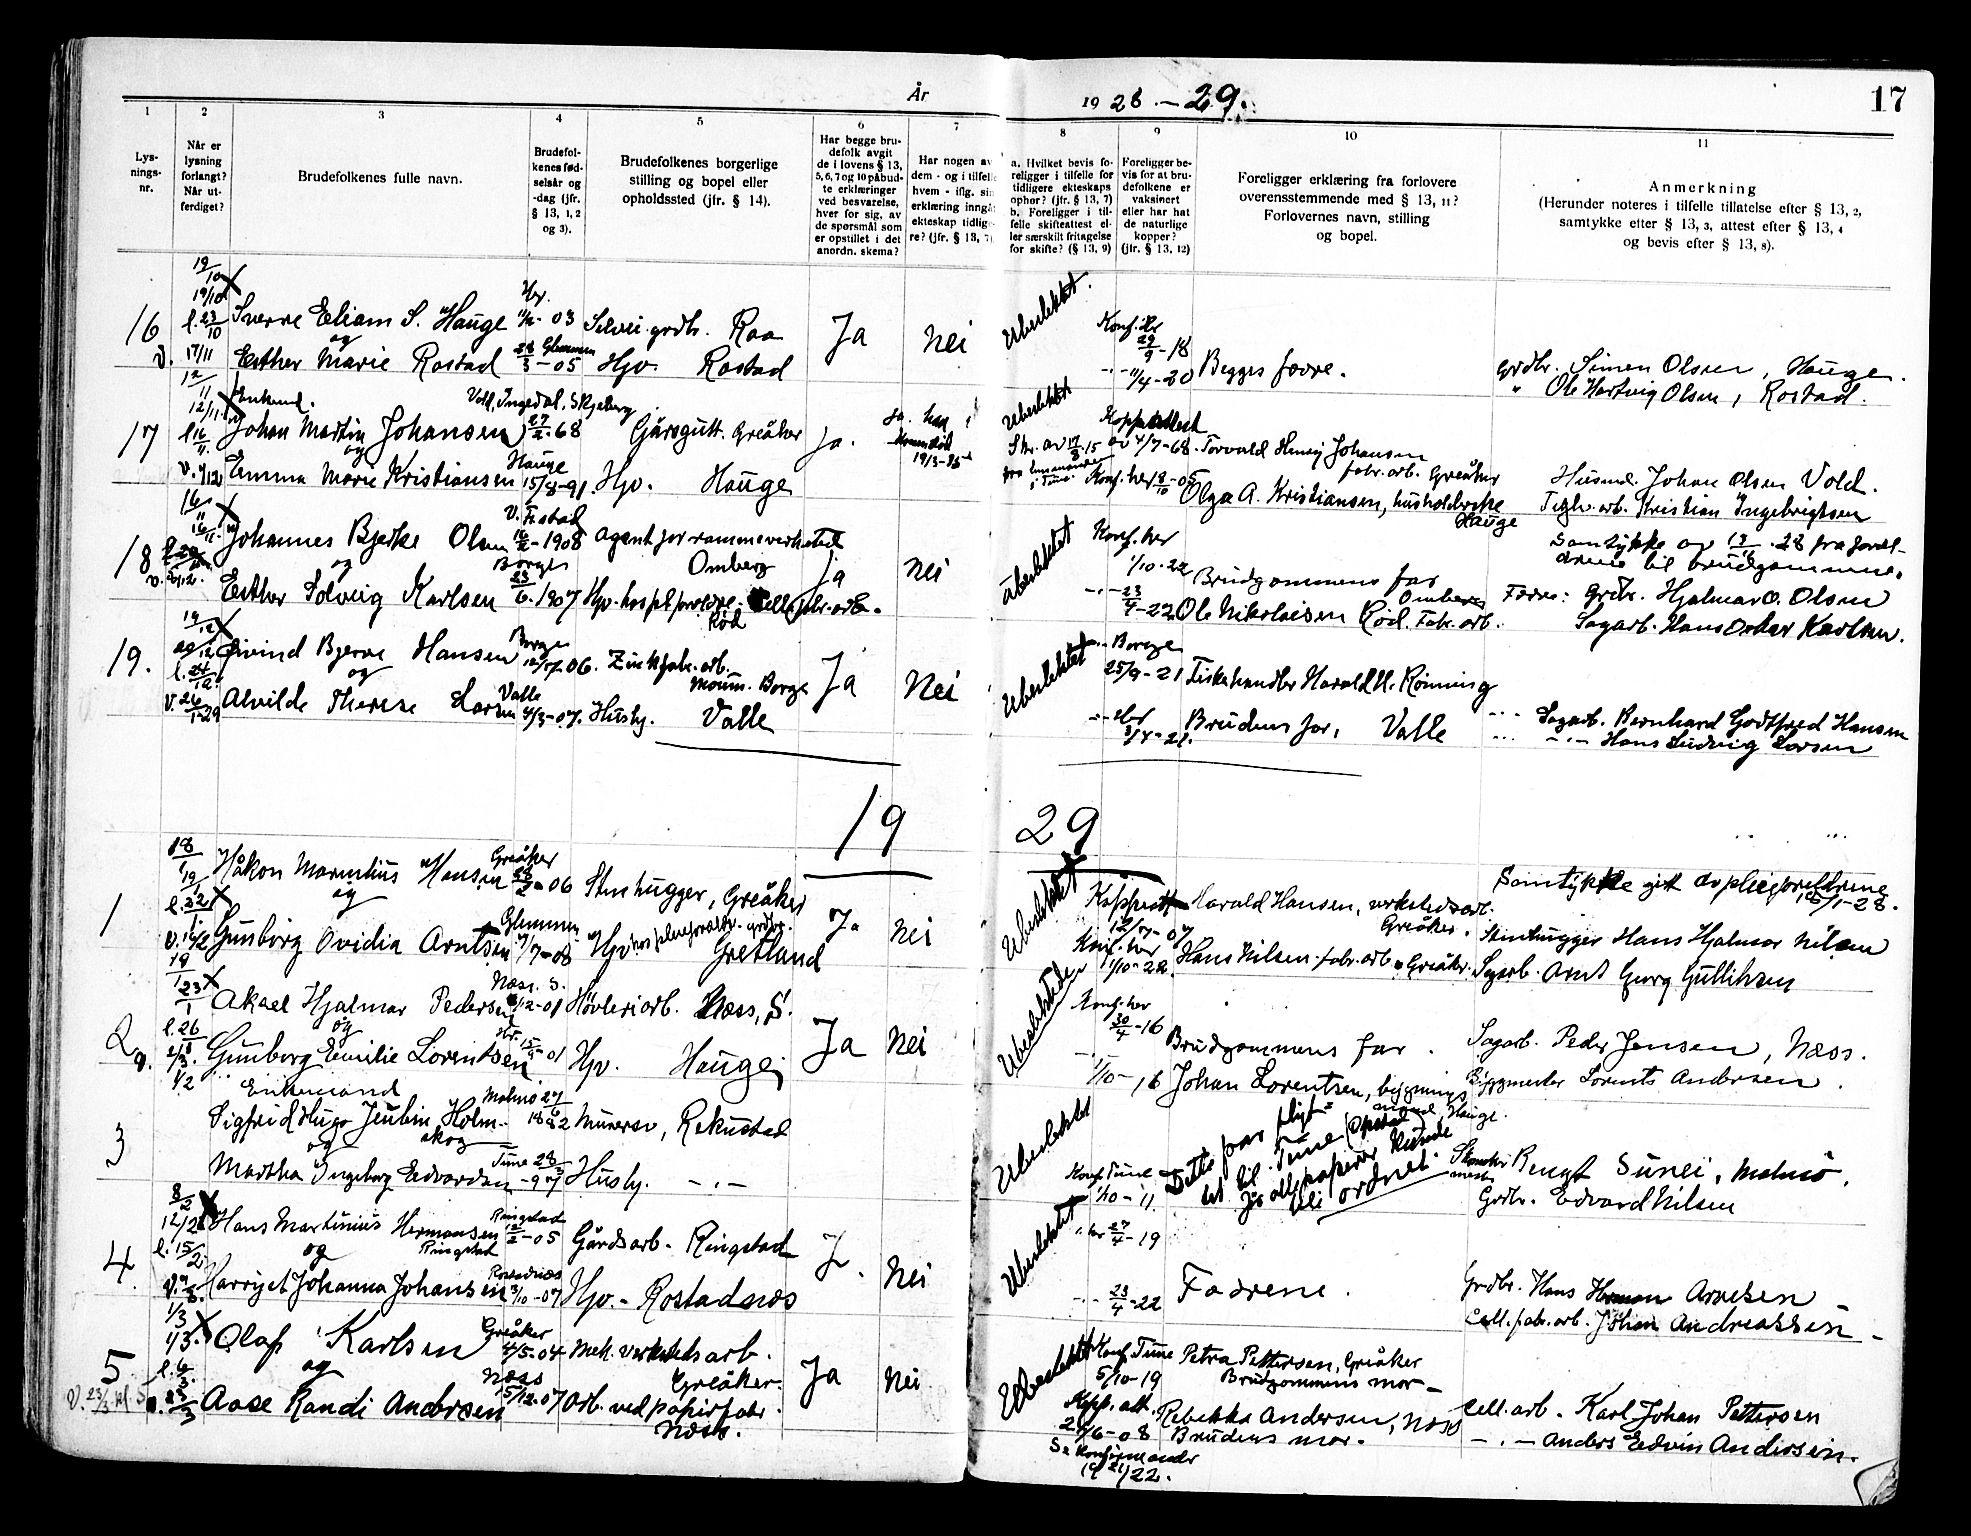 År 1928.-29.
17
1 2 3 4 5 6 7 8 9 10 11
Lys-
nings-
nr.
Når er
lysning
forlangt?
Når ut-
ferdiget?
Brudefolkenes fulle navn.
Brudefol-
kenes fød-
selsår og
-dag (jfr.
§ 13, 1, 2
og 3).
Brudefolkenes borgerlige
stilling og bopel eller
opholdssted (jfr. § 14).
Har begge bru-
defolk avgit
de i lovens § 13,
5, 6, 7 og 10 påbud-
te erklæringer
ved besvarelse,
hver for sig, av
de spørsmål som
er opstillet i det
anordn. skema?
Har nogen av
dem - og i tilfelle
hvem - iflg. sin
erklæring inngå
ekteskap tidlig-
re? (jfr. § 13, 7)
a. Hvilket bevis fo-
religger i tilfelle for
tidligere ekteskaps
ophør? (jfr. § 13, 7)
b. Foreligger i til-
felle skifteattest el-
ler særskilt fritagelse
for skifte? (§ 13, 9)
Foreligger be-
vis for at bru-
defolkene er
vaksinert
eller har hat
de naturlige
kopper?
(jfr. § 13, 12)
Foreligger erklæring fra forlovere
overensstemmende med § 13, 11?
Forlovernes navn, stilling
og bopel.
Anmerkning
(Herunder noteres i tilfelle tillatelse efter § 13, 2,
samtykke efter § 13, 3, attest efter § 13, 4
og bevis efter § 13, 8).
16
19/10
19/10
l. 23/10
V. 17/11
Sverre Eliam S. Hauge
og
Esther Marie Rostad
03
28/3 - 05
Glemmen
grdbr. Roa
Hpv. Rostad
Ja
Nei
Uberlektet.
Konf. Hr
29/9-18
11/4-20
Begges fedre.
grdbr. Simen Olsen, Hauge.
" Ole Hartvig Olsen, Rostad.
17
12/11
12/11
Enkemd.
Johan Martin Johansen
og
Emma Marie Kristiansen
Vold, Ingedal, Skjeberg
27/2-68
Hauge
15/8-91
Gårsgutt. Greåker
Hpv. Hauge
Ja.
Uberlektet
av 4/7-68
Konf. her
Torvald Henry Johansen
fabr. arb. Greåker
Olga A. Kristiansen, husholderske
Hauge
Husmd. Johan Olsen Vold.
Teglv. arb. Kristian Ingebrigtsen
18
16/11
Johannes Bjerke Olsen
og
Esther Solveig Karlsen
16/2-1908
Borge
23/6-1907
Agent for rammeverksted
Omberg
Hpv. hos pl. foreldre
Rød
Ja
Nei
Uberlektet
Konf. her
1/10-22
23/4-22
Brudgommens far
Omberg
Ole Nikolaisen Rød. Fabr. arb.
Samtykke av 13/11.28 fra foreld-
rene til brudgommen.
Fedre: Grdbr. Hjalmar O. Olsen
Sagarb. Hans Oskar Karlsen.
19.
19/12
V. 26/1-29
Øivind Bjerve Hansen
og
Alvilde Therese Larsen
Borge
06.
Valle
4/3-07.
Zinkfabr. arb.
Moum. Borge
Husby. Valle
Ja
Nei
Uberlektet
Borge
25/9-21
Fiskehandler Harald H. Rønning
Brudens far, Valle
Sagarb. Bernhard Godtfred Hansen
Hans Ludvig Larsen
19 29
1
18/1
19/1
l. 22/1
Håkon Marentius Hansen
og
Gunborg Ovidia Arntsen
Greåker
28/2-06
Glemmen
7/7-08
Stenhugger, Greåker
Hpv. hos pleieforeldr. grdbr.
Gretland
Ja
Nei
Uberlektet
Koppeatt
12/7-07
Konf. her
1/10-22.
Harald Hansen, verkstedsarb.
Greåker.
Hans Nilsen fabr. arb. Greåker.
Samtykke gitt av pleieforeldrene
Stenhugger Hans Hjalmar Nilsen
Sagarb. Arnt Georg Gulliksen
2
19/1
23/1
l. 26/1
Aksel Hjalmar Pedersen
og
Gunborg Emilie Lorentsen
Næss. S.
Høvleriarb. Næss, S.
Hpv. Hauge
Ja
Nei
Konf. her
30/4-16
1/10-16
Brudgommens far.
Johan Lorentsen, bygnings
mand, Hauge.
Sagarb. Peder Jensen, Næss.
Byggmester Lorents Andersen.
3
1/2
Enkemand
Sigfrid Hugo Jeubin Holm-
skog
og
Martha Ingeborg Edvardsen
Malmö 27/6
1882
Tune 28/3
-97
Murersv, Rekustad
Husby.
Uberlektet
Konf. Tune
1/10-11.
Dette par flyt-
tet til Tune (Opstad
før alle papirer kunde
bli ordnet.
Bengt Sunei, Malmö.
Grdbr. Edvard Nilsen
4
8/2
12/2
l. 15/2
Hans Martinius Hermansen
Ringstad
og
Harriet Johanna Johansen
Ringstad
12/2-05
Rostadnes
3/10-07
Gårdsarb. Ringstad
Hpv. - Rostadnes
Ja.
Nei
Uberlektet
her 27/4-19
23/4-22
Fedrene.
Grdbr. Hans Herman Arnesen
Cell. fabr. arb. Johan Andreassen
5
1/3
1/3.
V. 23/3 kl 5
Olaf Karlsen
og
Aase Randi Andersen
Greåker
4/5-04
Næss
5/12-07
Mek. verkstedsarb.
Greåker.
Arb. ved papirfabr.
Næss.
Ja
Nei
Uberlektet
Konf. Tune
5/10-19
Kopp. att.
2/6-08
Petra Pettersen, Greåker
Brudgommens mor -
Rebekka Andersen, Næss
Brudens mor.
Cell. arb. Karl Johan Pettersen
- . - Anders Edvin Andersen.